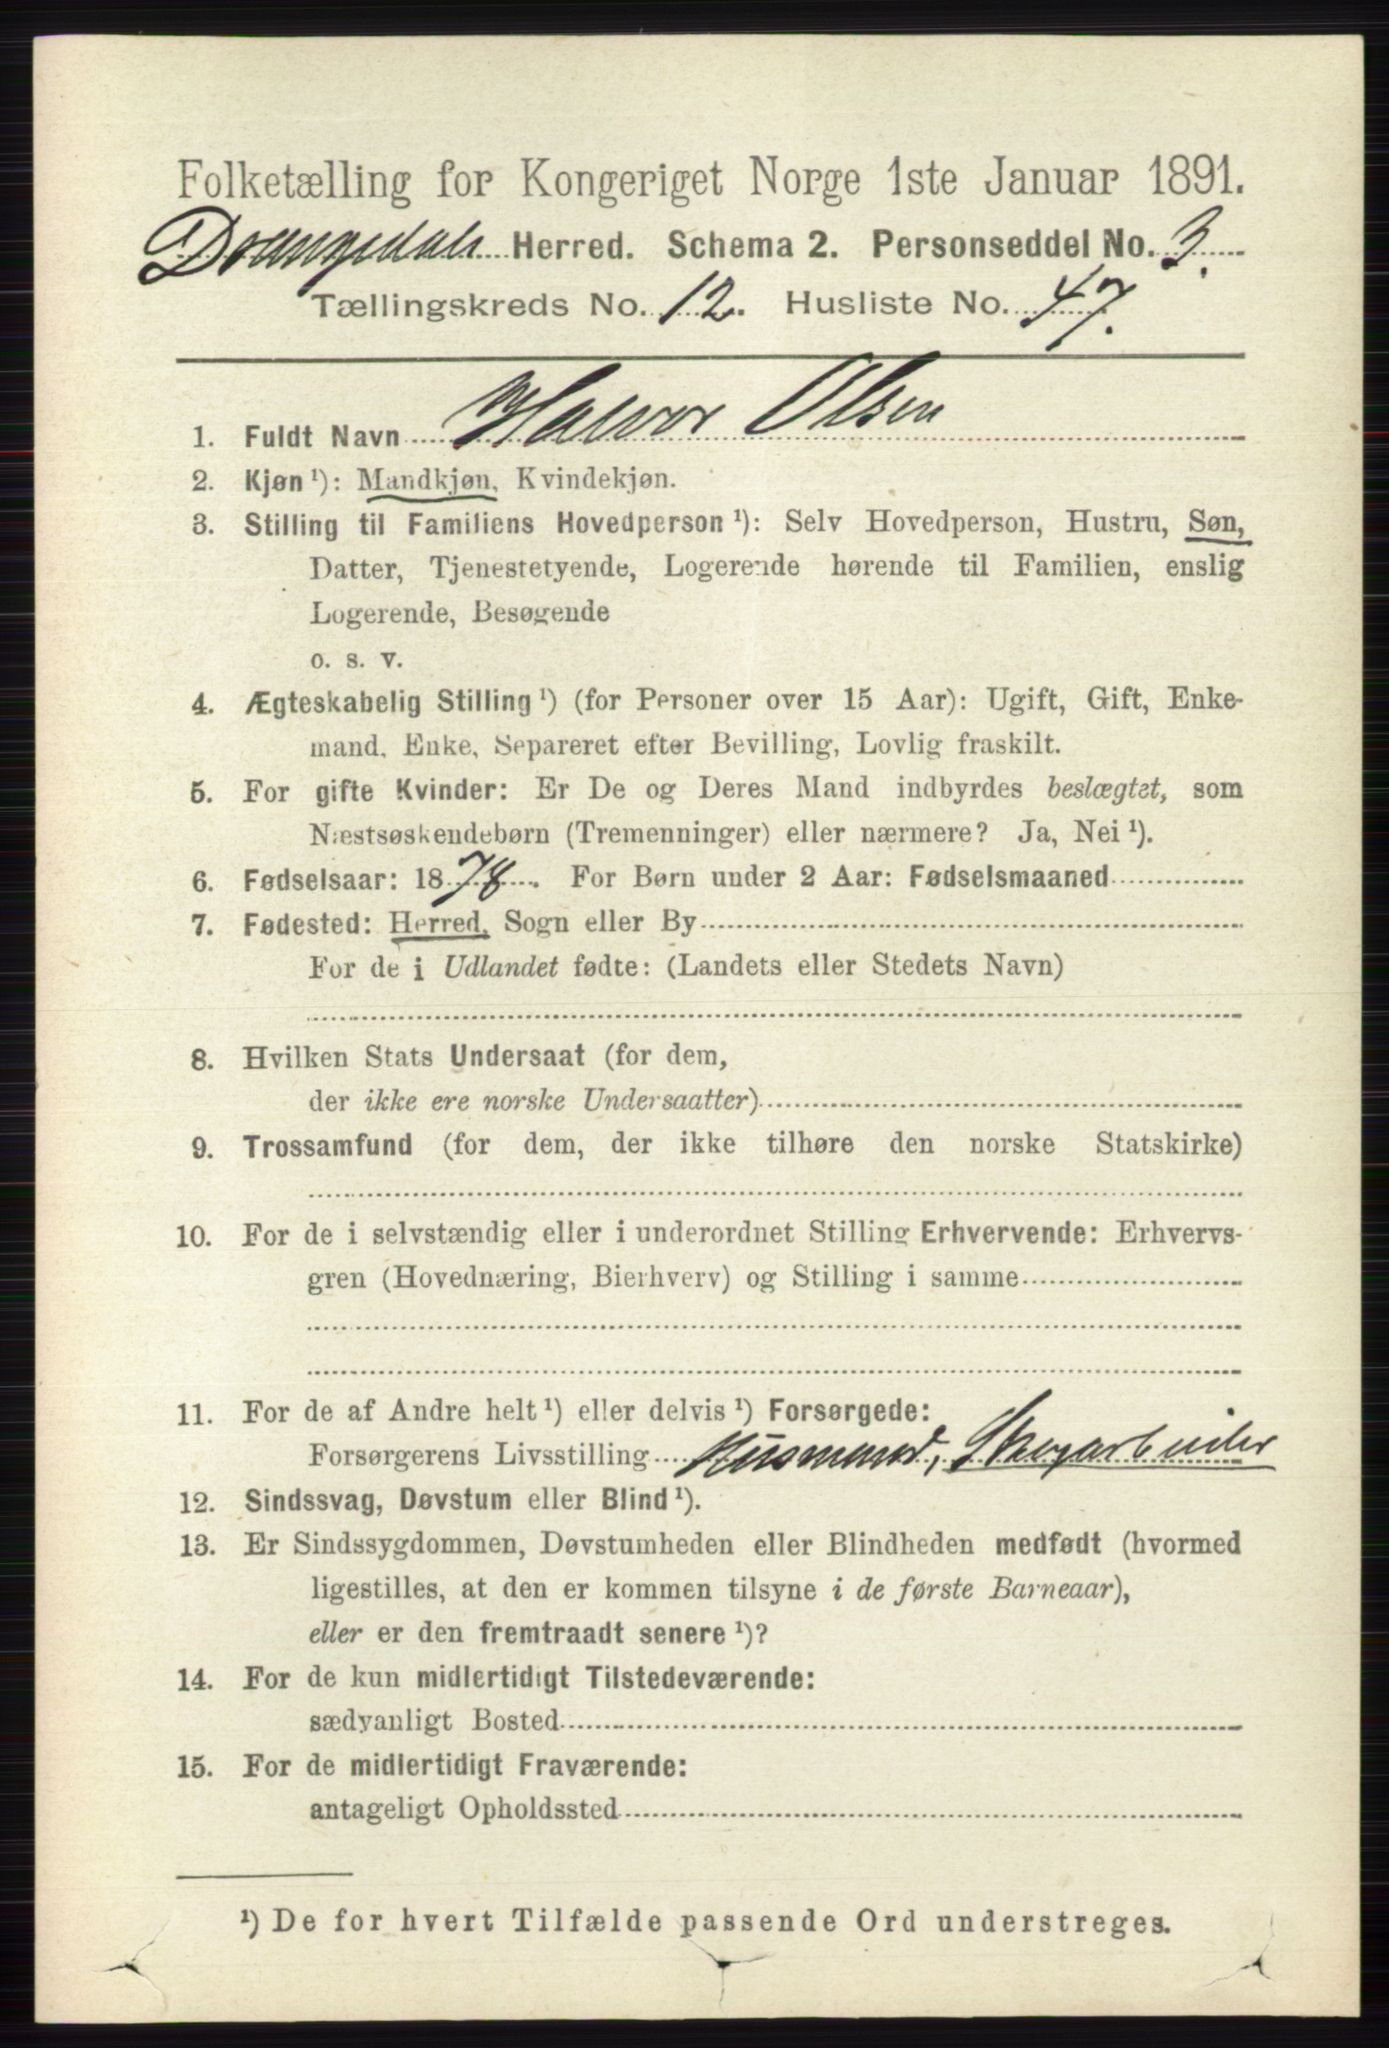 Folketælling for Kongeriget Norge 1ste Januar 1891.
Drangedals Herred. Schema 2. Personseddel No. 3.
Tællingskreds No. 12. Husliste No. 47.
1. Fuldt Navn Halvor Olsen
2. Kjøn ¹): Mandkjøn, Kvindekjøn.
3. Stilling til Familiens Hovedperson ¹): Selv Hovedperson, Hustru, Søn,
Datter, Tjenestetyende, Logerende hørende til Familien, enslig
Logerende, Besøgende
o. s. v.
4. Ægteskabelig Stilling ¹) (for Personer over 15 Aar): Ugift, Gift, Enke-
mand, Enke, Separeret efter Bevilling, Lovlig fraskilt.
5. For gifte Kvinder: Er De og Deres Mand indbyrdes beslægtet, som
Næstsøskendebørn (Tremenninger) eller nærmere? Ja, Nei ¹).
6. Fødselsaar: 1878. For Børn under 2 Aar: Fødselsmaaned
7. Fødested: Herred, Sogn eller By
For de i Udlandet fødte: (Landets eller Stedets Navn)
8. Hvilken Stats Undersaat (for dem,
der ikke ere norske Undersaatter)
9. Trossamfund (for dem, der ikke tilhøre den norske Statskirke)
10. For de i selvstændig eller i underordnet Stilling Erhvervende: Erhvervs-
gren (Hovednæring, Bierhverv) og Stilling i samme
11. For de af Andre helt ¹) eller delvis ¹) Forsørgede:
Forsørgerens Livsstilling Husmand, Skogarbeider
12. Sindssvag, Døvstum eller Blind ¹).
13. Er Sindssygdommen, Døvstumheden eller Blindheden medfødt (hvormed
ligestilles, at den er kommen tilsyne i de første Barneaar),
eller er den fremtraadt senere ¹)?
14. For de kun midlertidigt Tilstedeværende:
sædvanligt Bosted
15. For de midlertidigt Fraværende:
antageligt Opholdssted
¹) De for hvert Tilfælde passende Ord understreges.